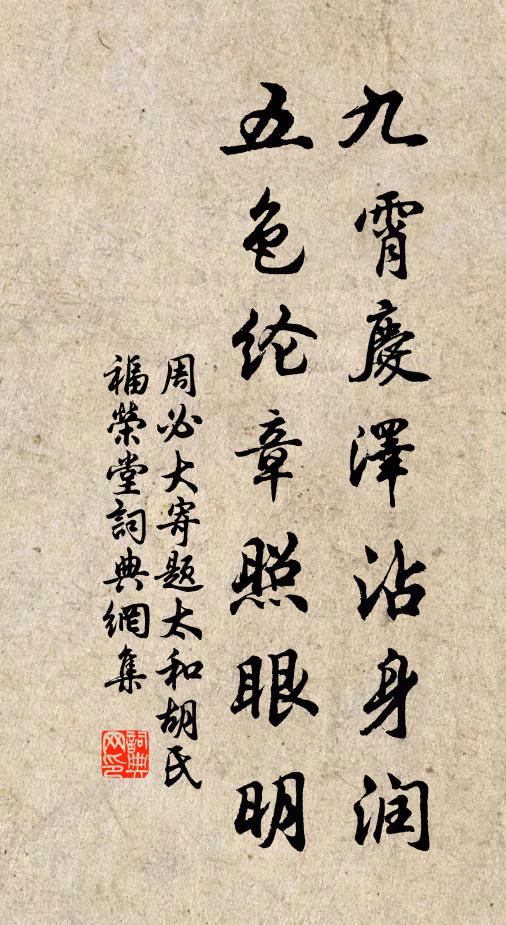 九霄慶澤沾身润
五色纶章照眼明
周必大寄题太和胡氏
福榮堂詞典網集
詞典网印